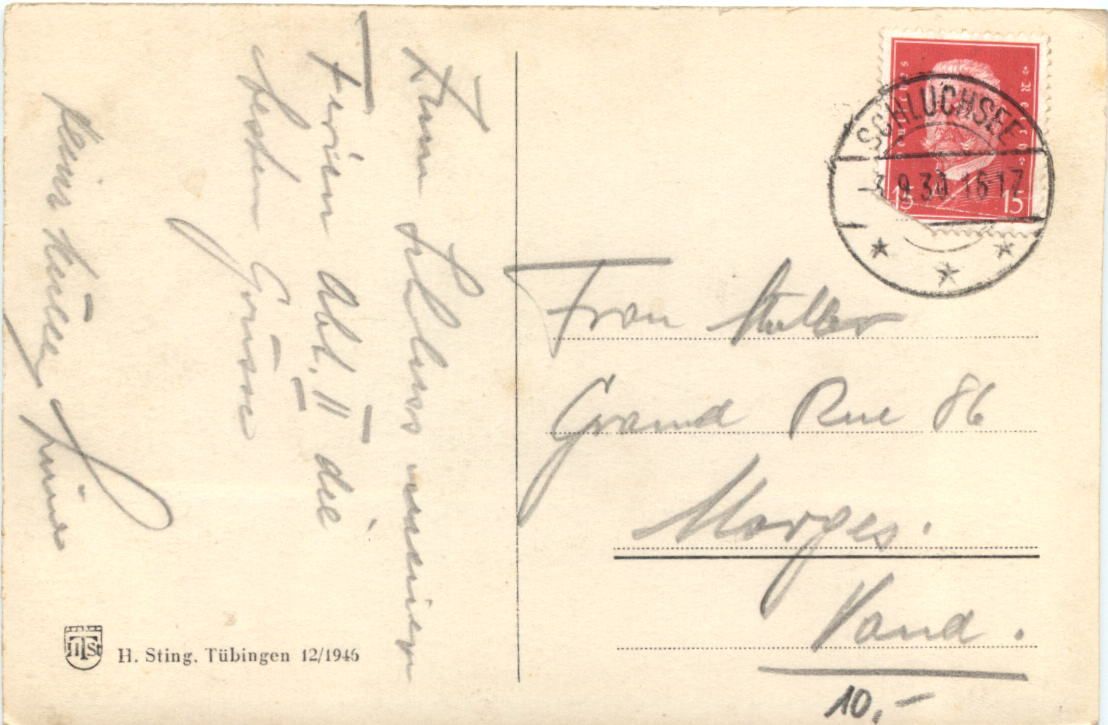 Zum Schluss meiner
Ferien Abt. II die
besten Grüsse
Deutsches Reich
15 15
SCHLUCHSEE
-3.9.30 16-17
Frau Muller
Grand Rue 86
Morges.
Vaud.
10.-
H. Sting, Tübingen 12/1946